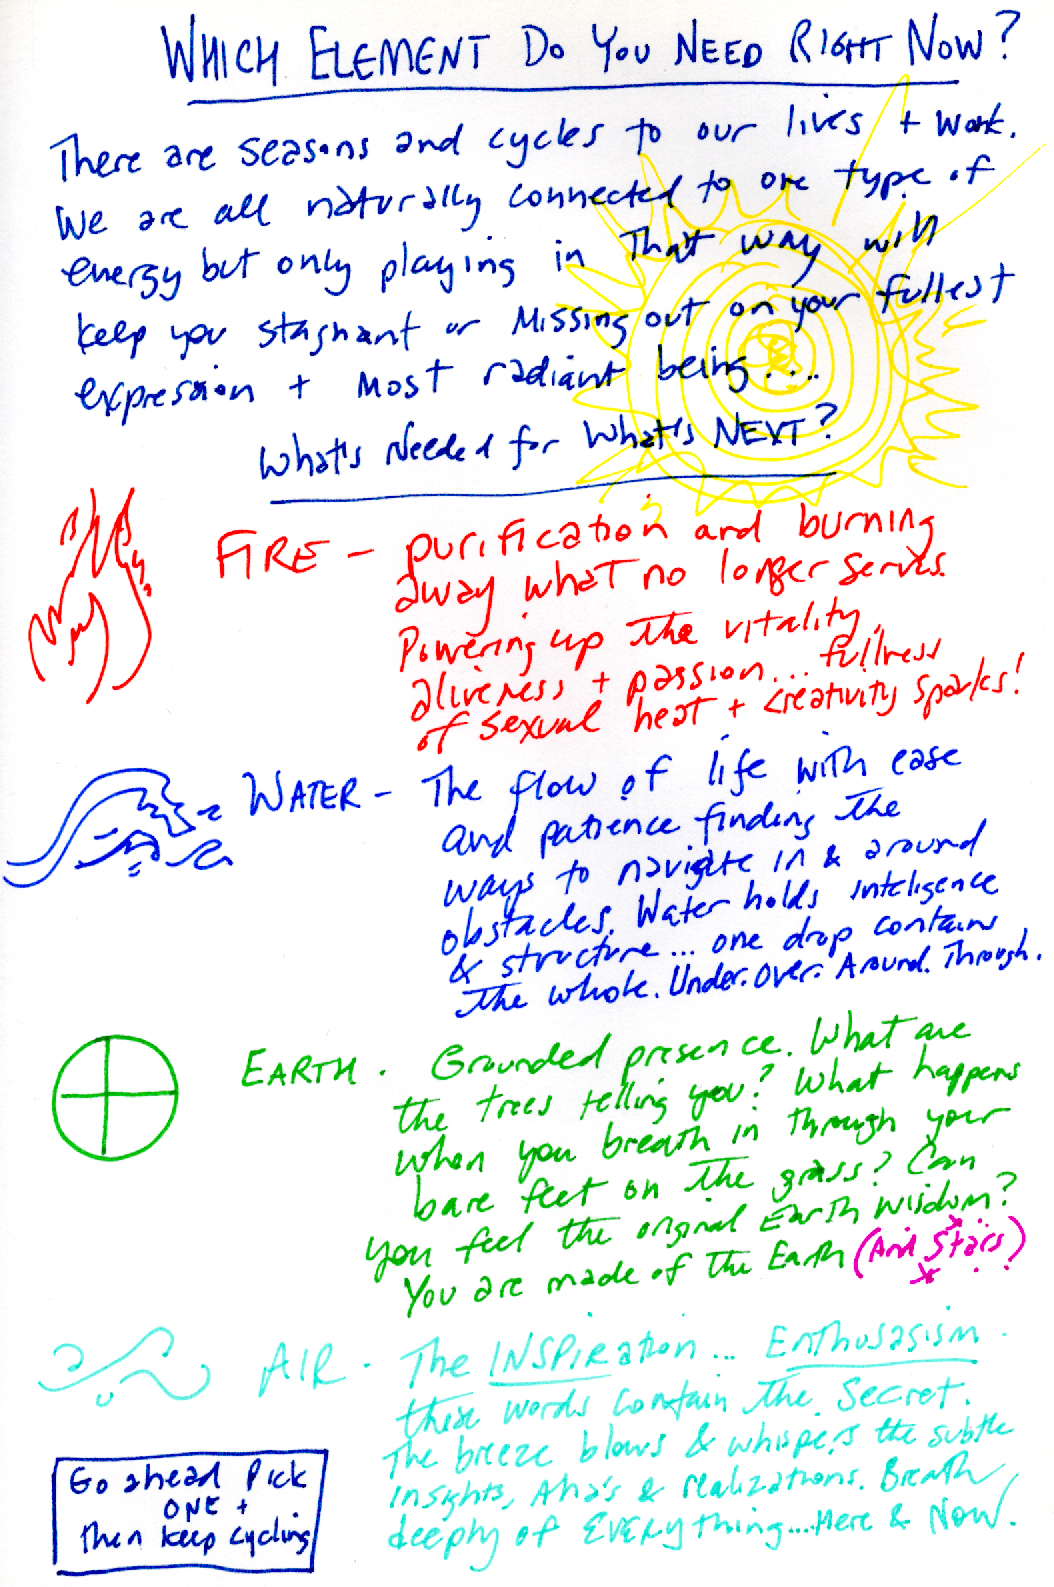 WHICH ELEMENT DO YOU NEED RIGHT NOW?
There are seasons and cycles to our lives + work.
We are all naturally connected to one type of
energy but only playing in that way will
keep you stagnant or missing out on your fullest
expression + most radiant being...
What's Needed for What's NEXT?
FIRE - purification and burning
away what no longer serves.
Powering up the vitality,
aliveness + passion... fullness
of sexual heat + creativity sparks!
WATER - The flow of life with ease
and patience finding the
ways to navigate in & around
obstacles. Water holds inteligence
& structure... one drop contains
the whole. Under. Over. Around. Through.
EARTH. Grounded presence. What are
the trees telling you? What happens
when you breath in through your
bare feet on the grass? Can
you feel the original Earth wisdom?
You are made of the Earth (And Stars)
AIR - The INSPIRation... Enthusasism.
these words contain the secret.
The breeze blows & whispers the subtle
insights, Aha's & realizations. Breath
deeply of EVERYthing.... Here & Now.
Go ahead Pick
ONE +
Then keep cycling